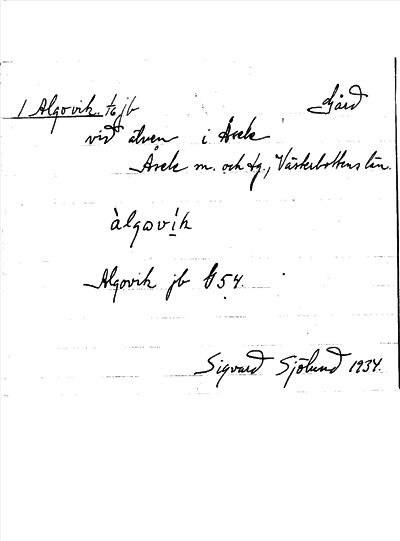 1 Algovik 1/6 jb Gård
vid älven i Åsele
Åsele sn. och tg., Västerbottens län.
àlgωvík
Algovik jb G54.
Sigvard Sjölund 1934.